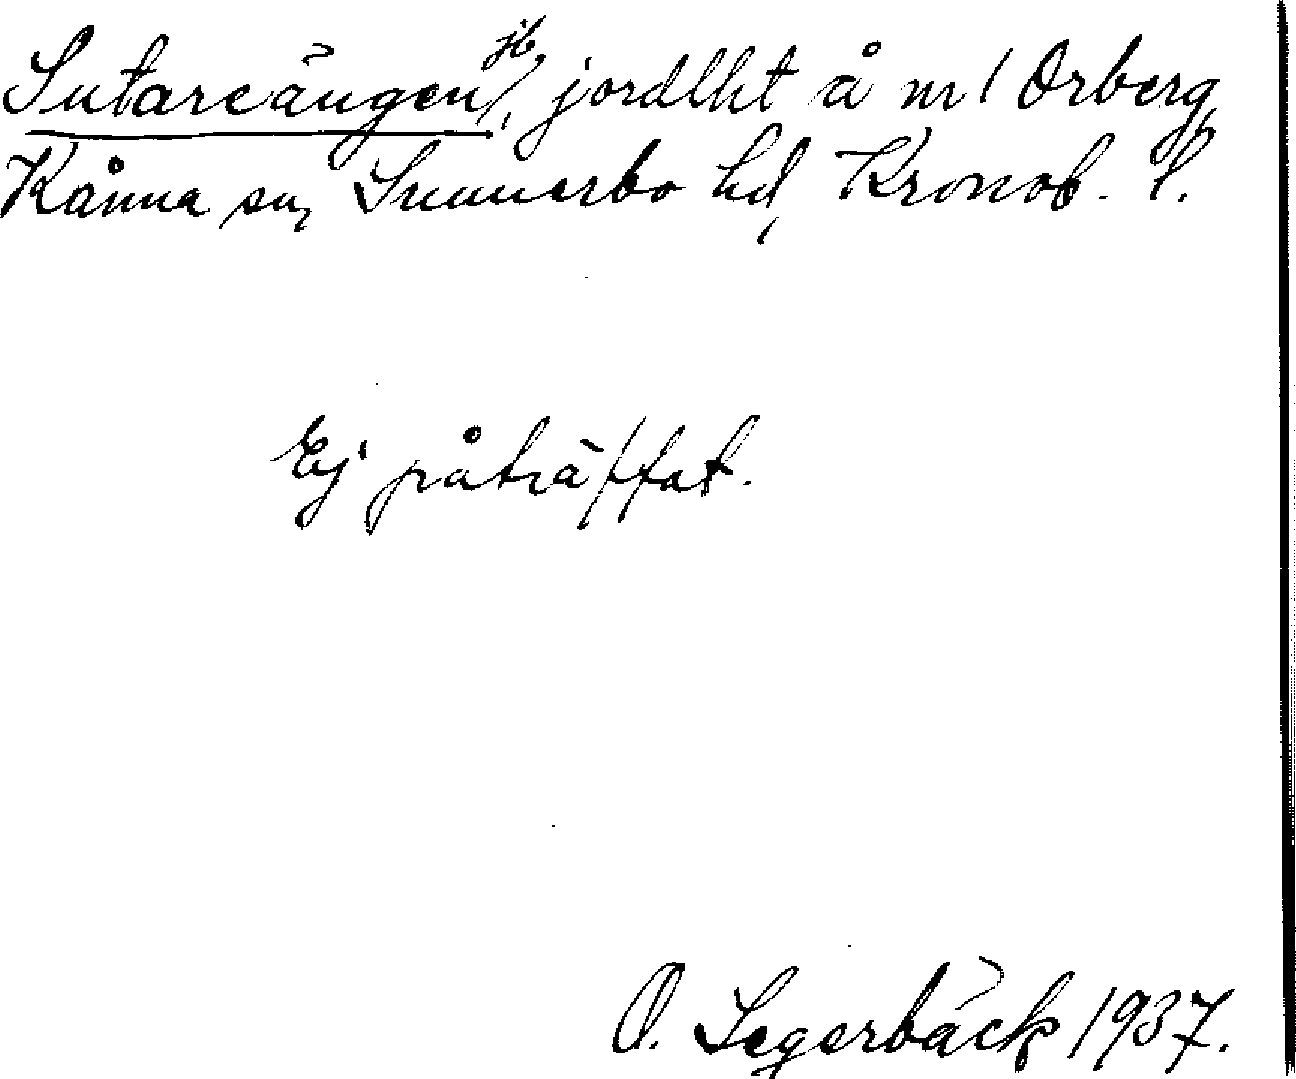 Sutareängen jb, jordlht å nr 1 Orberg,
Kånna sn, Sunnerbo hd, Kronob. l.
Ej påträffat.
O. Segerbäck 1937.